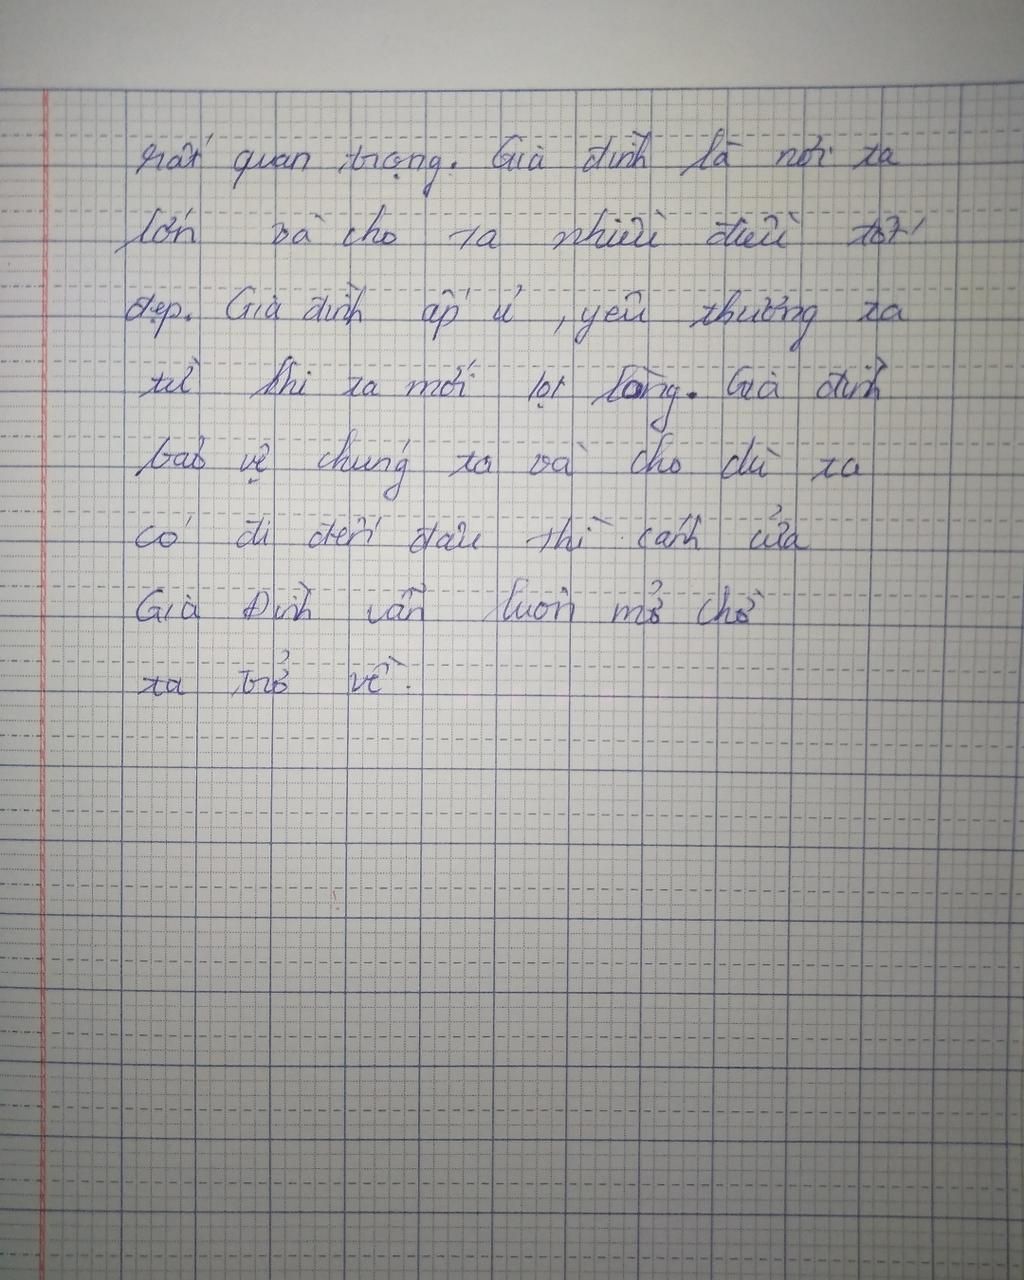 rất quan trọng. Gia đình là nơi ta
lớn và cho ta nhiều điều tốt
đẹp. Gia đình ấp ủ, yêu thương ta
từ khi ta mới lọt lòng. Gia đình
bảo vệ chúng ta và cho dù ta
có đi đến đâu thì cánh cửa
Gia Đình vẫn luôn mở chờ
ta trở về.